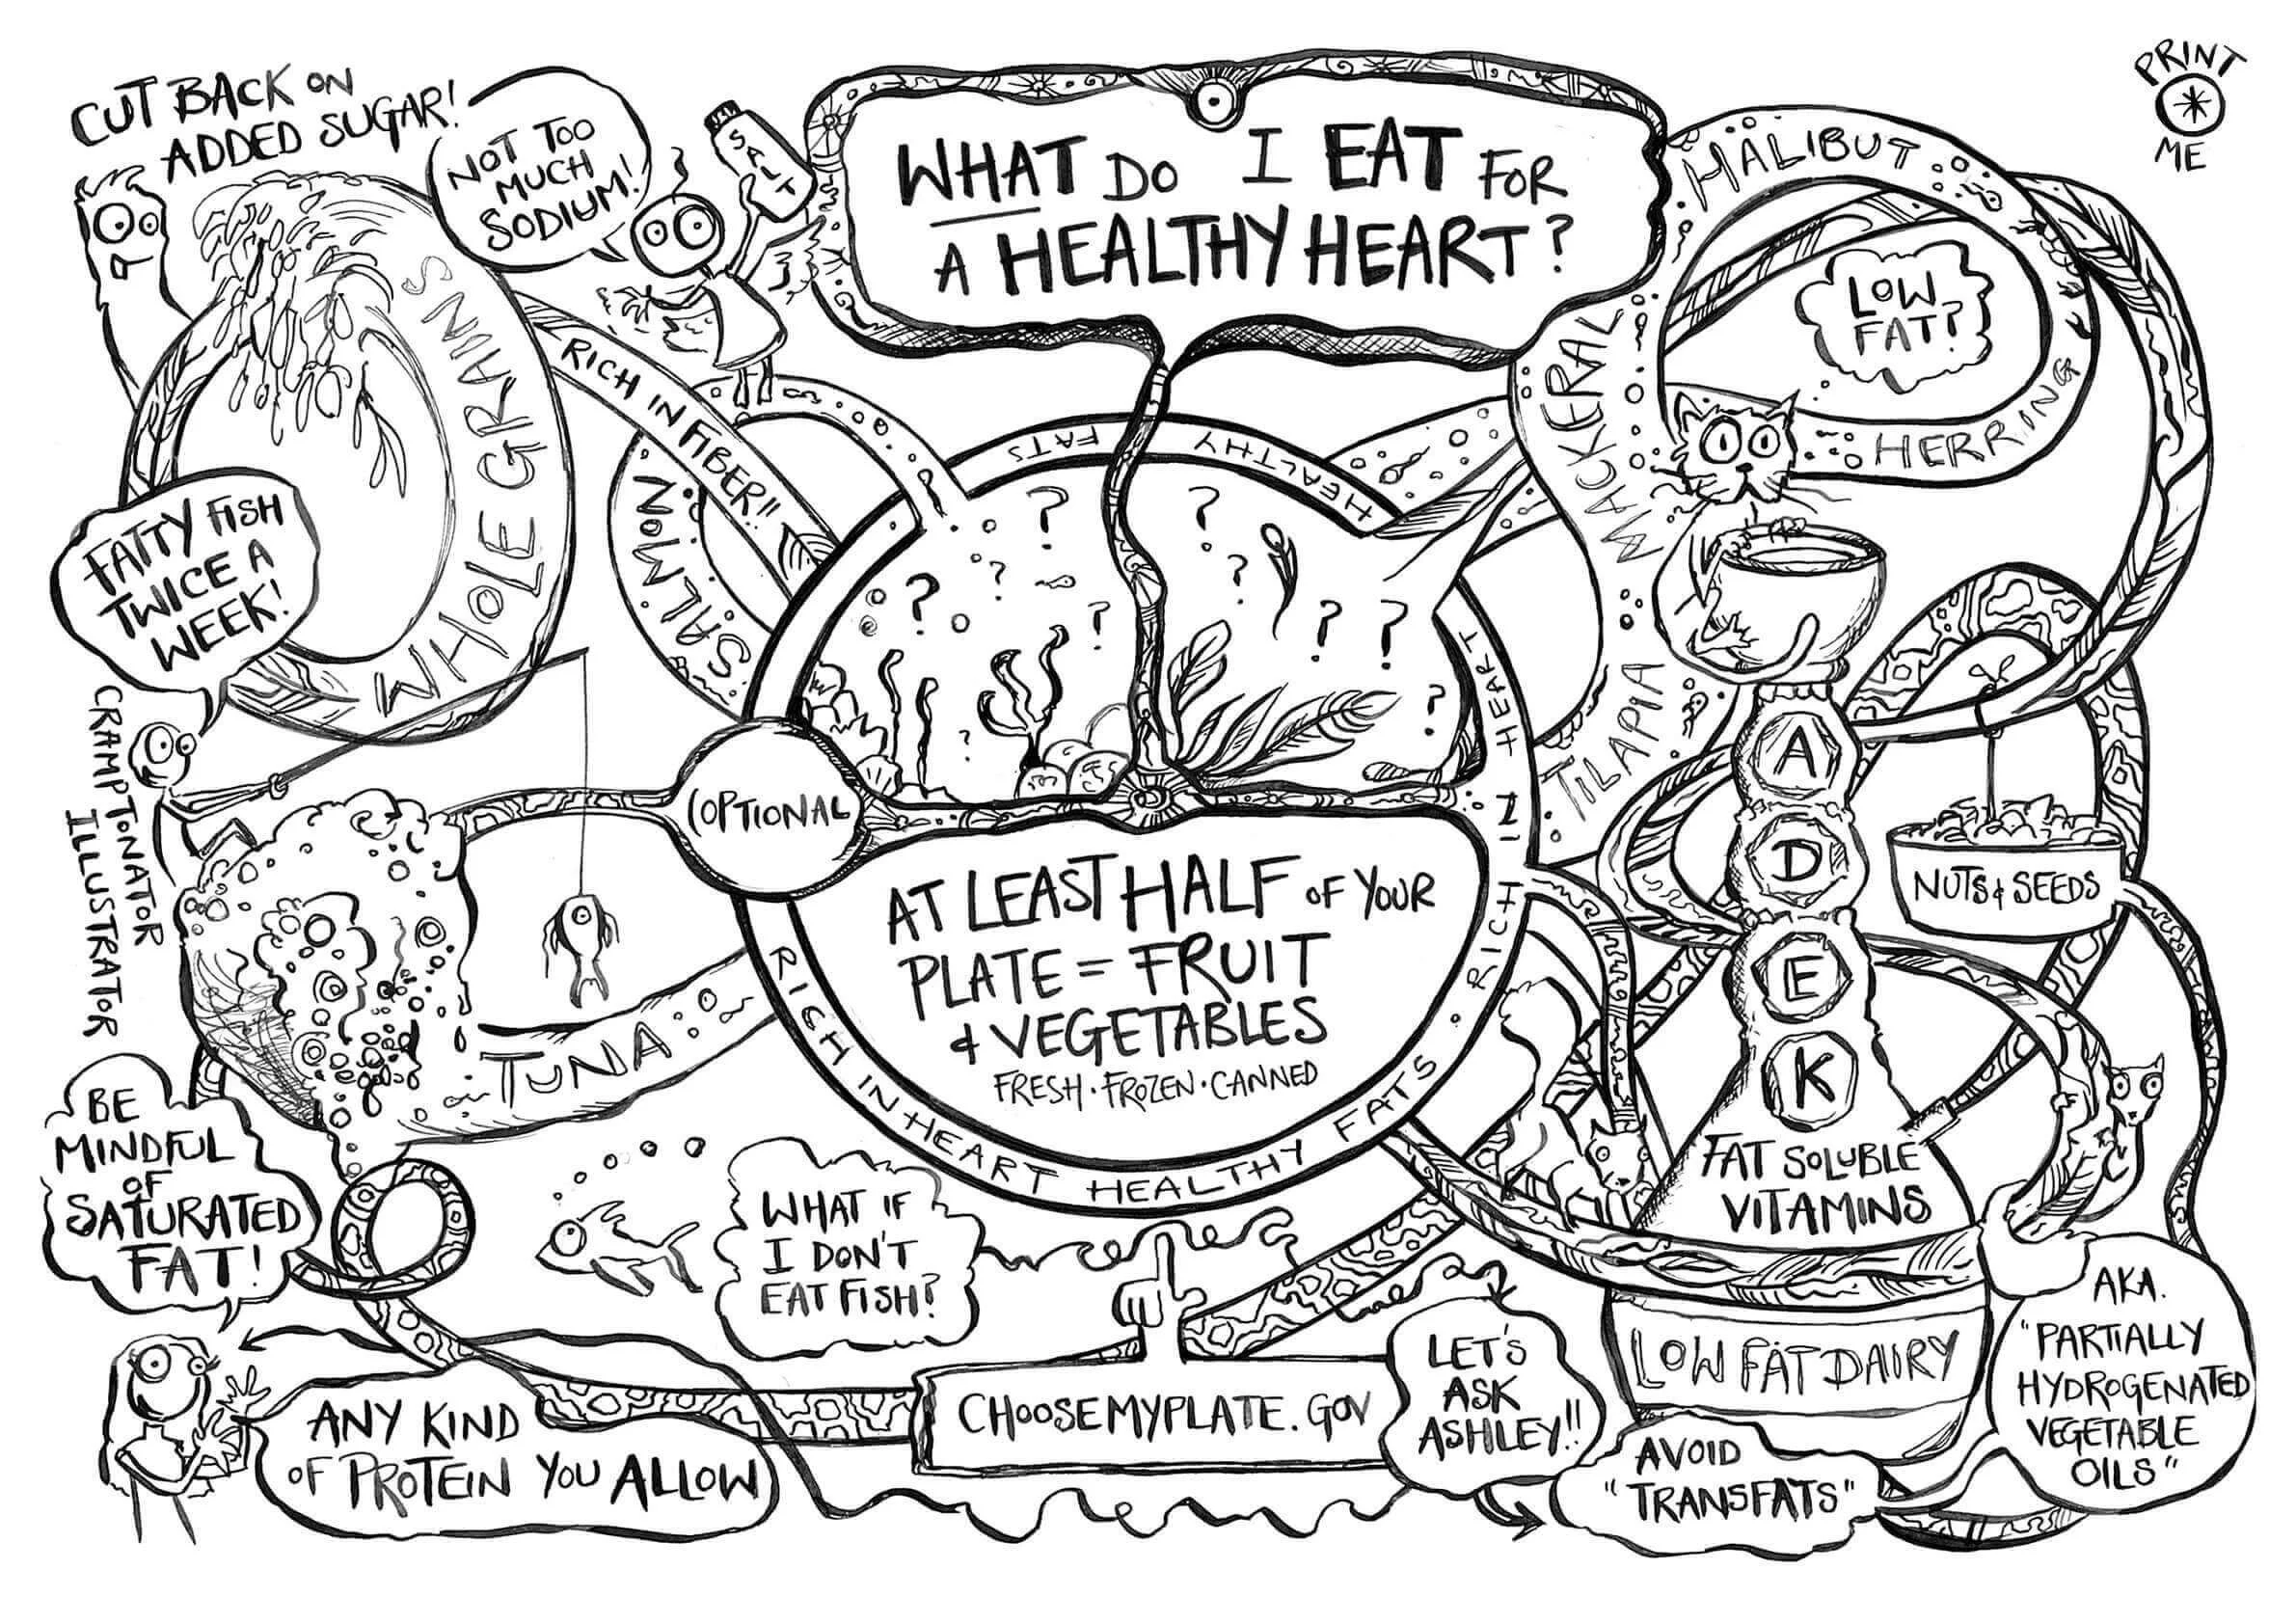 WHAT DO I EAT FOR
A HEALTHY HEART?
PRINT
ME
CUT BACK ON
ADDED SUGAR!
NOT TOO
MUCH
SODIUM!
SALT
WHOLE GRAINS
RICH IN FIBER!!
FATTY FISH
TWICE A
WEEK!
CRAMPTONATOR
ILLUSTRATOR
SALMON
HALIBUT
MACKERAL
HERRING
TILAPIA
TUNA
LOW
FAT?
(OPTIONAL
AT LEAST HALF OF YOUR
PLATE = FRUIT
& VEGETABLES
FRESH · FROZEN · CANNED
RICH IN HEART HEALTHY FATS
RICH IN HEART HEALTHY FATS
A
D
E
K
FAT SOLUBLE
VITAMINS
NUTS & SEEDS
LOW FAT DAIRY
BE
MINDFUL
OF
SATURATED
FAT!
WHAT IF
I DON'T
EAT FISH?
ANY KIND
OF PROTEIN YOU ALLOW
CHOOSEMYPLATE.GOV
LET'S
ASK
ASHLEY!!
AVOID
"TRANSFATS"
AKA.
"PARTIALLY
HYDROGENATED
VEGETABLE
OILS"